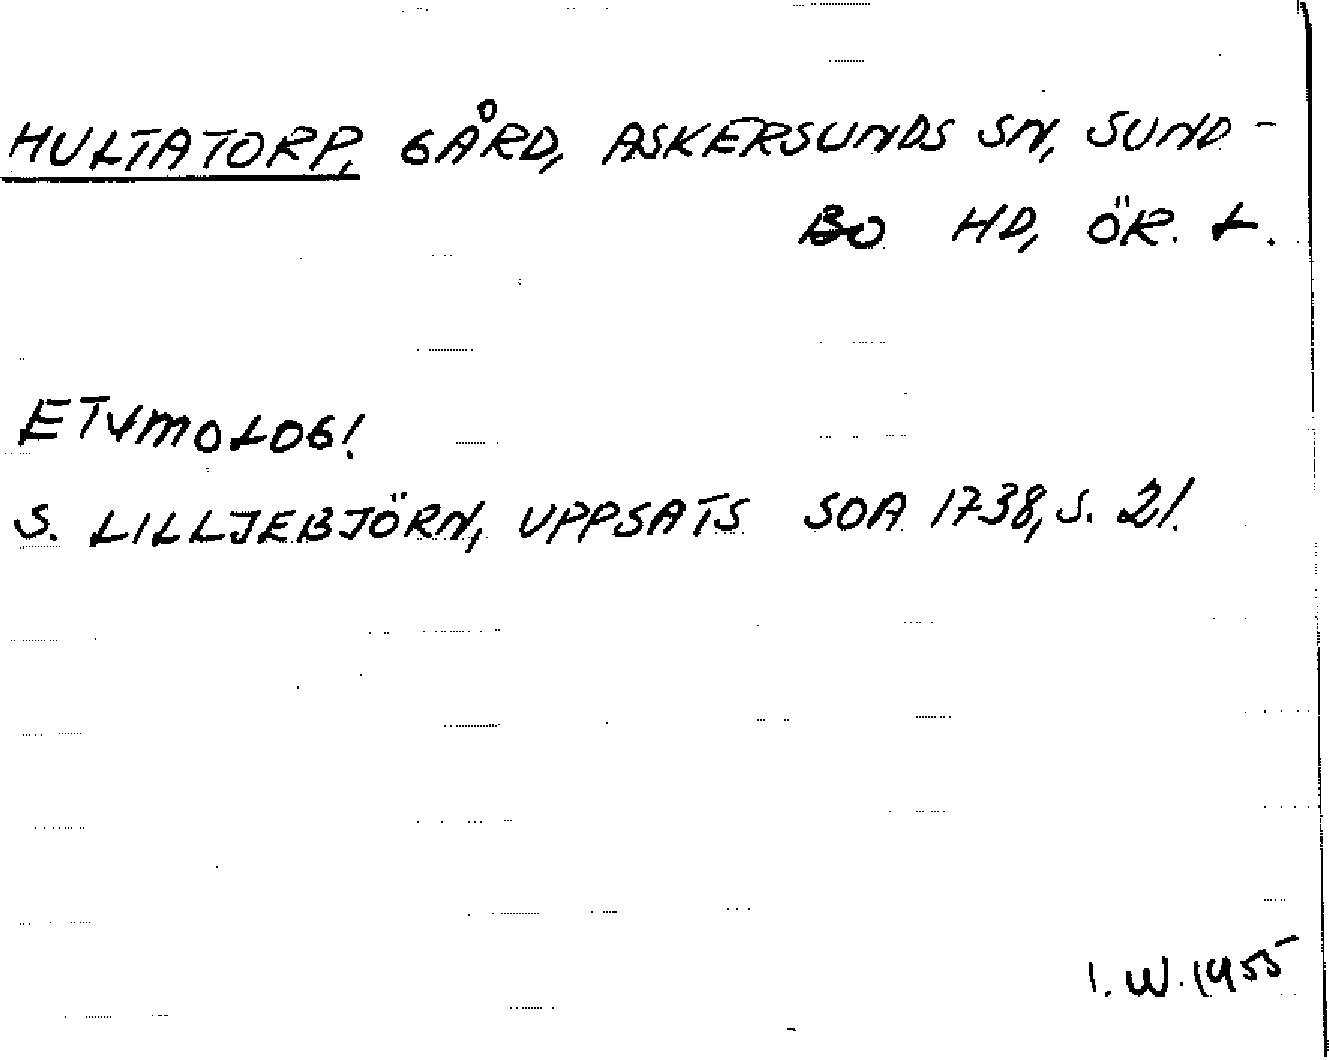 HULTATORP, GÅRD, ASKERSUNDS SN, SUND-
BO HD, ÖR. L.
ETYMOLOGI
S. LILLJEBJÖRN, UPPSATS SOA 1738, S. 21.
I. W. 1955